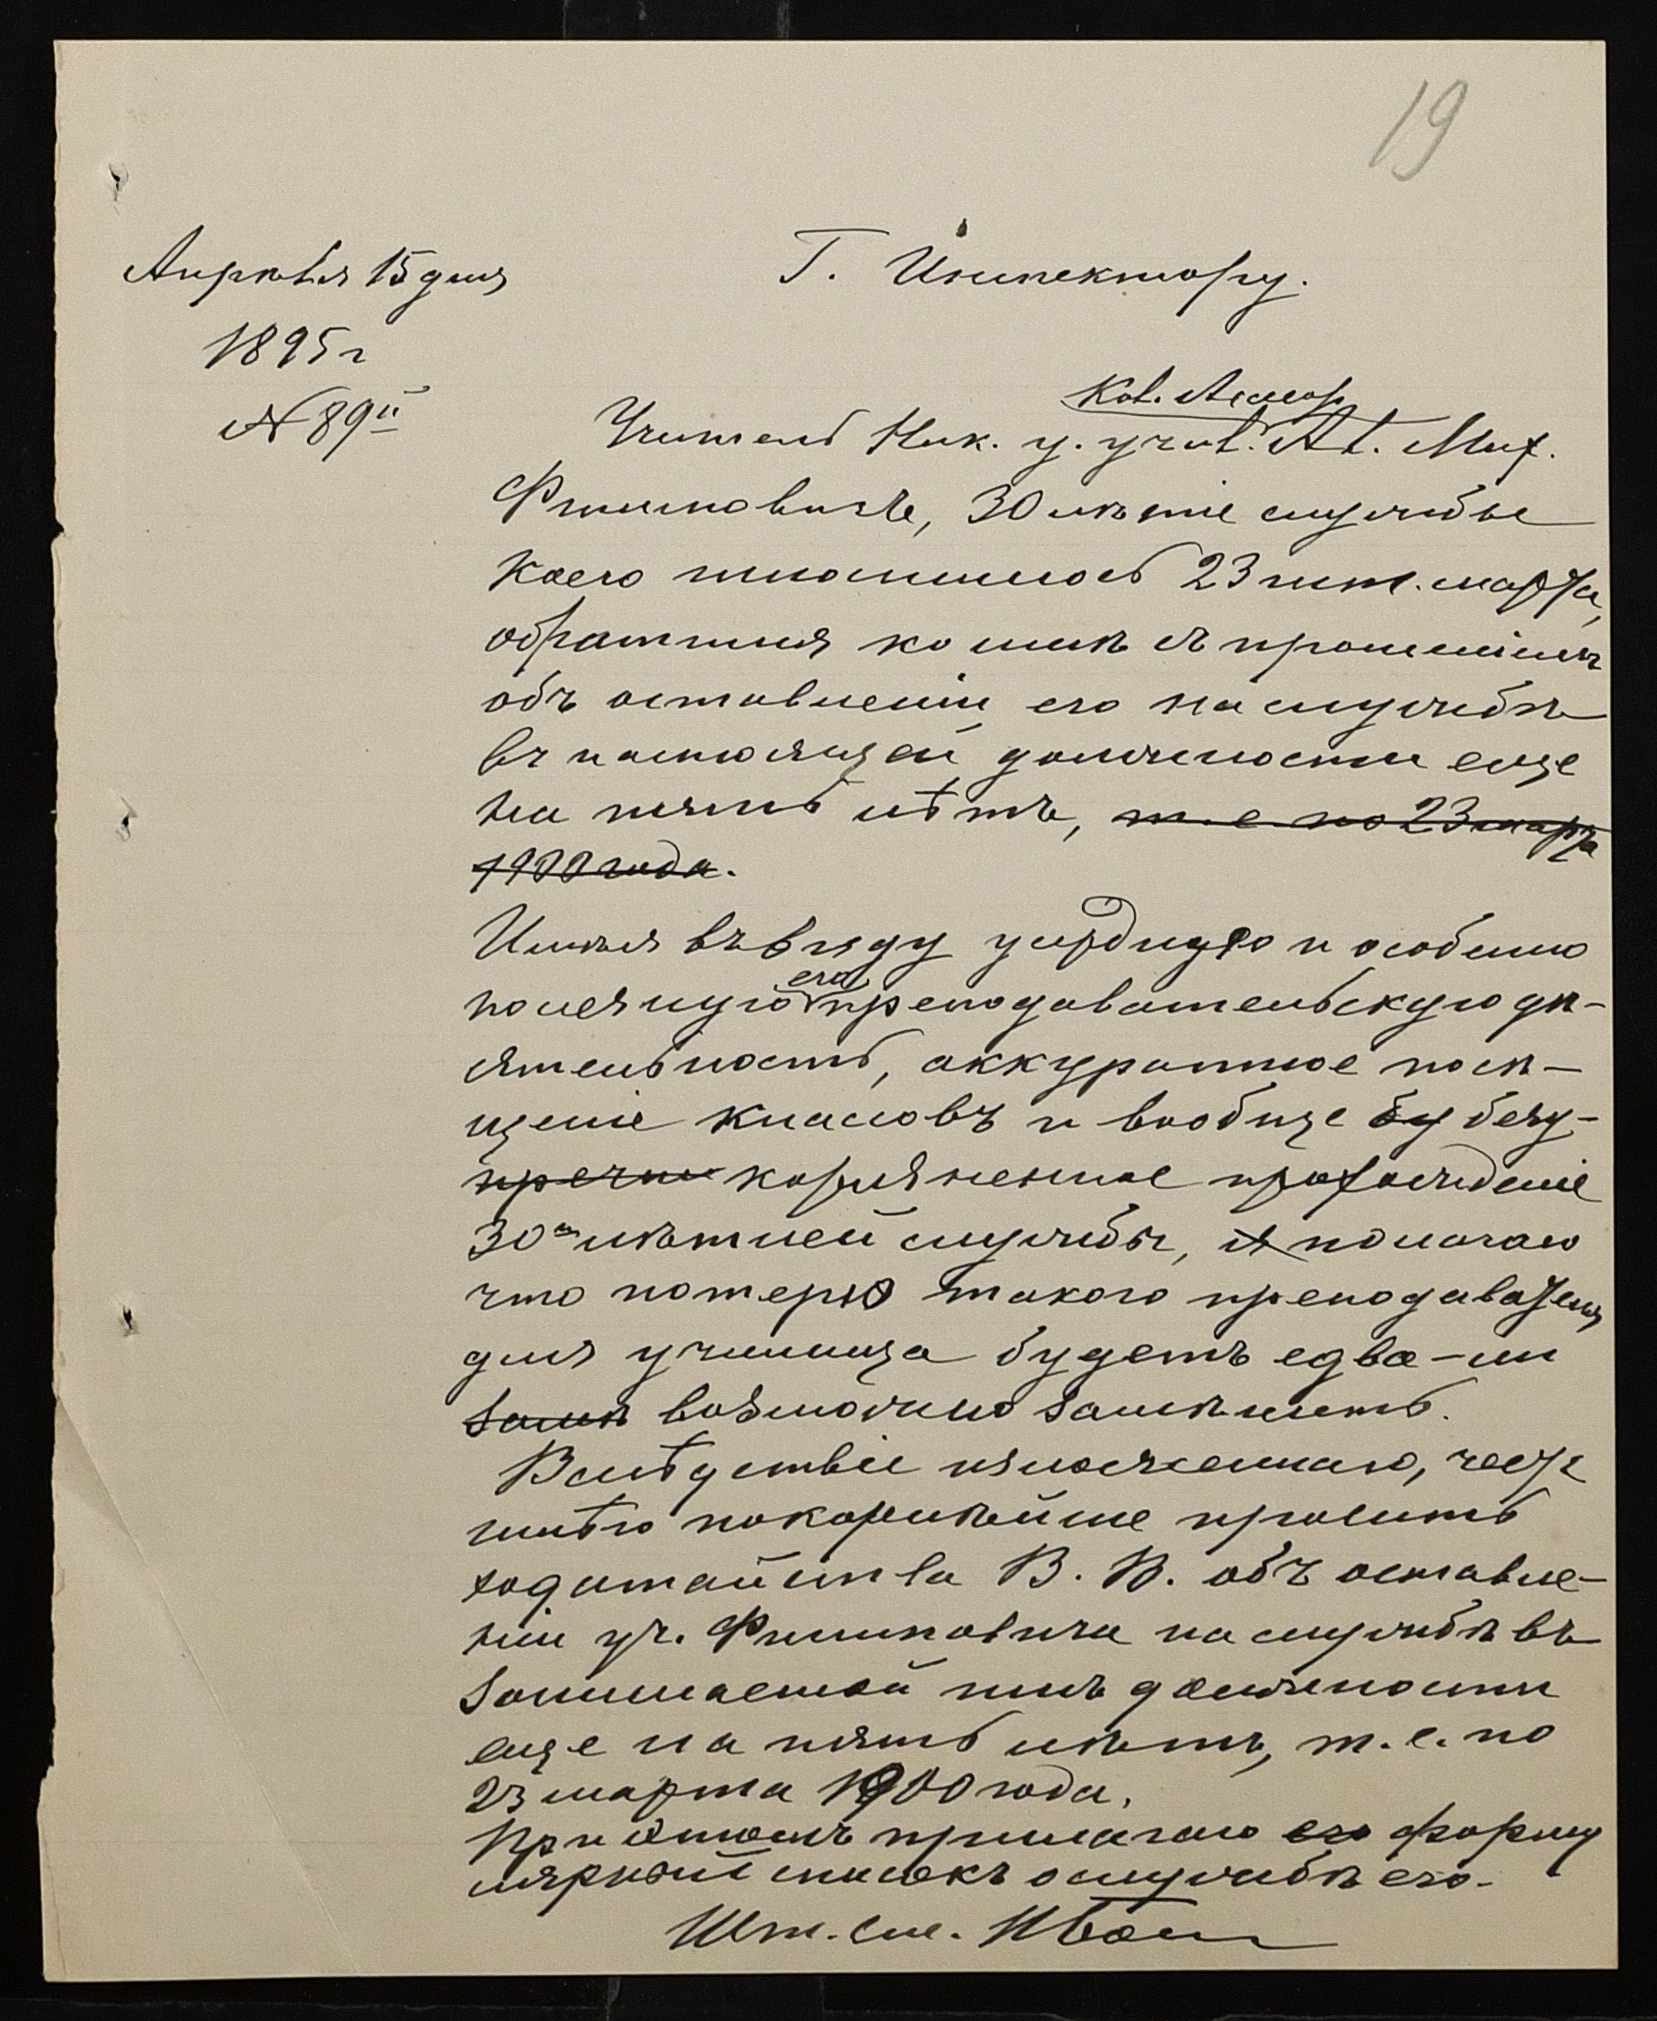 19
Апрѣля 15 дня
1895 г
№ 89й
Г. Инспектору.
Кол. Ассесор
Учитель Ник. у. учил. Ал. Мих.
Филиповичъ, 30 лѣтіе службы
коего исполнилось 23 ист. марта,
обратился ко мнѣ съ прошеніемъ
объ оставленіи его на службѣ
въ настоящей должности еще
на пять лѣтъ, т. е. по 23 марта
1900 года.
Имѣя въ виду усердную и особенно
полезную его преподавательскую дѣ-
ятельность, аккуратное посѣ-
щеніе классовъ и вообще бу безу-
пречн прохожденіе
30ти лѣтней службы, я полагаю
что потерю такого преподавателя
для училища будетъ едва-ли
замѣ возможно замѣнить.
Вслѣдствіе изложеннаго, честь
имѣю покорнѣйше просить
ходатайства В. В. объ оставле-
ніи уч. Филиповича на службѣ въ
занимаемой имъ должности
еще на пять лѣтъ, т. е. по
23 марта 1900 года.
При этомъ прилагаю его форму
лярный списокъ о службѣ его.
Шт. См.